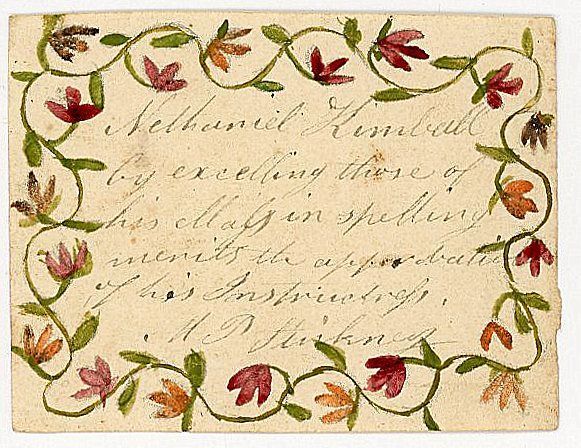 Nethaniel Kimball
by excelling those of
his Class in spelling
merits the approbation
of his Instructress.
M P Stickney